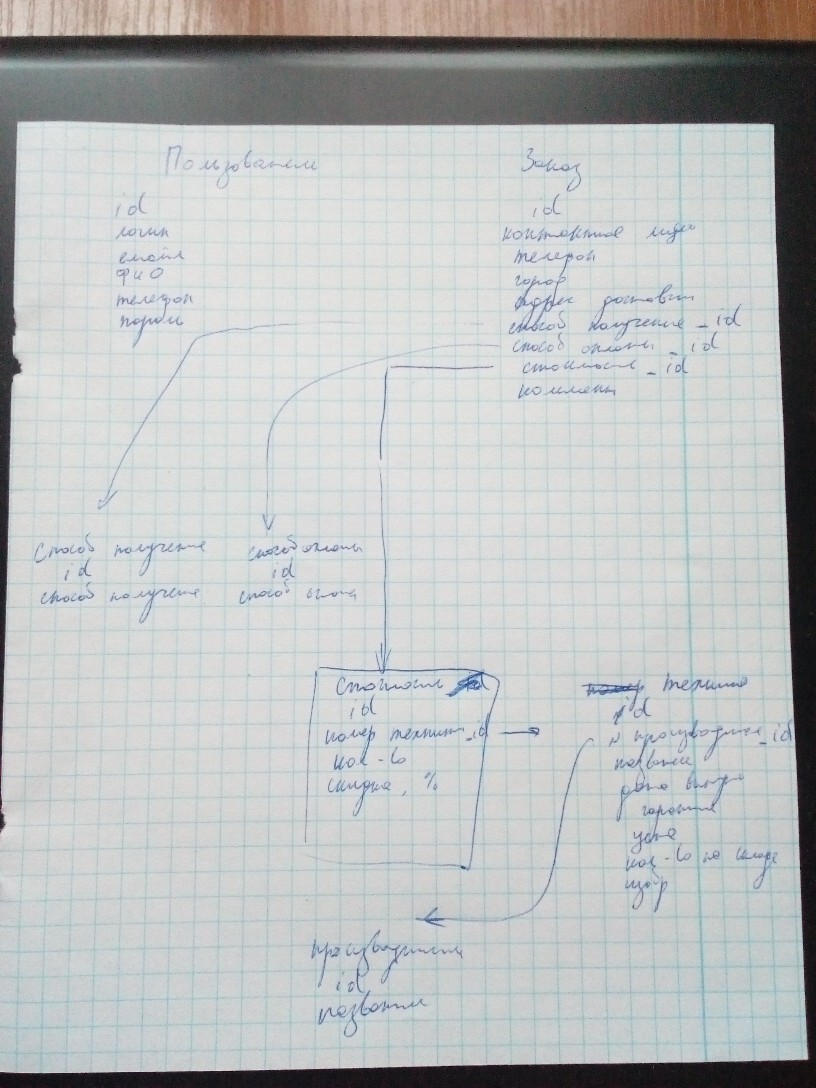 Пользователи
id
логин
емайл
ФИО
телефон
пароль
Заказ
id
контактное лицо
телефон
город
адрес доставки
способ получение_id
способ оплаты_id
стоимость_id
коммент
Способ получение
id
способ получение
способ оплаты
id
способ оплаты
Стоимость
id
номер техники_id
кол-во
скидка, %
номер техника
id
производителя_id
название
дата выпус
гарантия
цена
кол-во на складе
изобр
производители
id
название